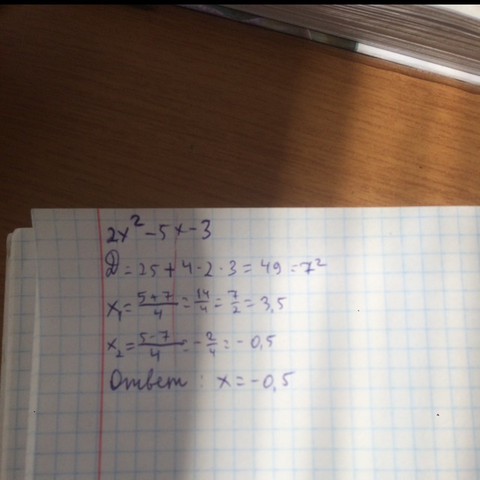 2x² - 5x - 3
D = 25 + 4·2·3 = 49 = 7²
x₁ = (5+7)/4 = 14/4 = 7/2 = 3,5
x₂ = (5-7)/4 = -2/4 = -0,5
Ответ: x = -0,5